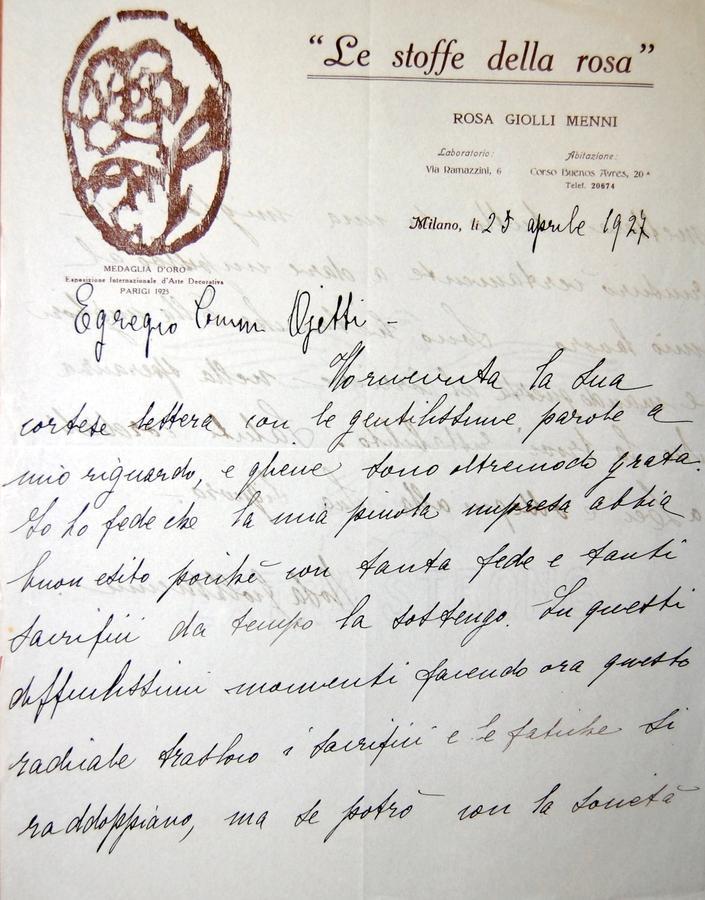 "Le stoffe della rosa"
ROSA GIOLLI MENNI
Laboratorio: Abitazione:
Via Ramazzini, 6 Corso Buenos Ayres, 20 A
Telef. 20674
Milano, li 25 aprile 1927
MEDAGLIA D'ORO
Esposizione Internazionale d'Arte Decorativa
PARIGI 1925
Egregio Comm. Ojetti -
la sua
cortese lettera con le gentilissime parole a
mio riguardo, e gliene sono oltremodo grata.
Io ho fede che la mia piccola impresa abbia
buon esito poichè con tanta fede e tanti
sacrifici da tempo la sostengo. In questi
difficilissimi momenti facendo ora questo
radicale trasloco i sacrifici e le fatiche si
raddoppiano, ma se potrò con la società